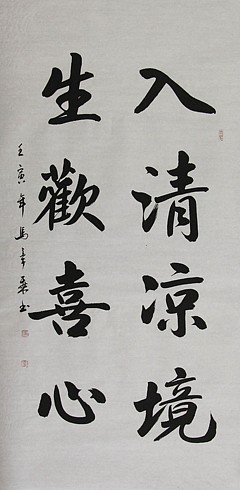 入清凉境
生歡喜心
壬寅年馬年業书